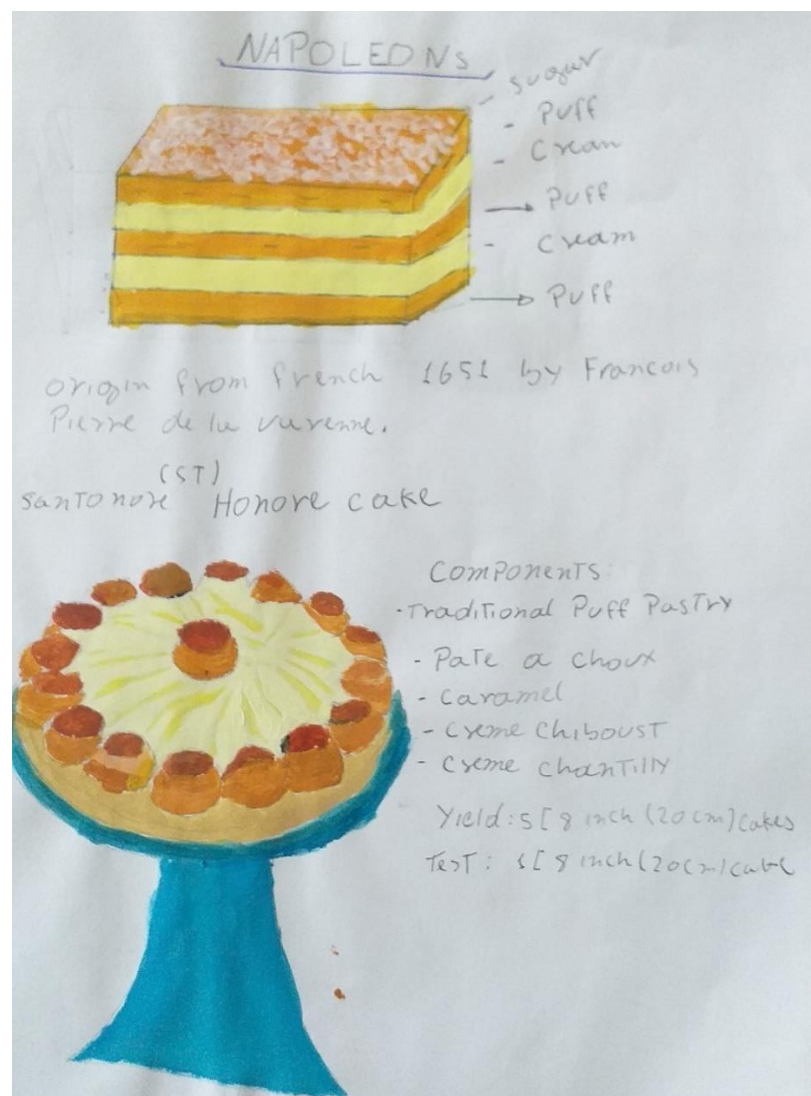 NAPOLEONs
- sugar
- Puff
- Cream
Puff
- cream
Puff
origin from french 1651 by Francois
Pierre de la varenne.
(ST)
santonore Honore cake
Components
- Traditional Puff Pastry
- Pate a choux
- Caramel
- Creme Chiboust
- Creme chantilly
Yield: 5 [8 inch (20cm] cakes
Test: 1[ 8 inch (20cm) cake